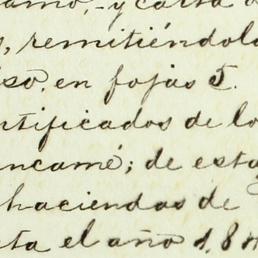 amo,- y carta d
, remitiéndola
so, en fojas 5.
ntificados de lo
ncamé; de esta
haciendas de
ta el año 1,8